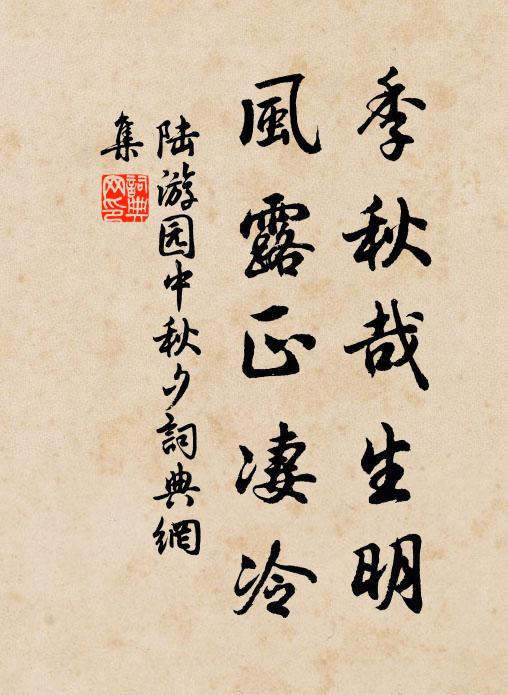 季秋哉生明
風露正淒冷
陆游园中秋夕詞典網
集
詞典
网印